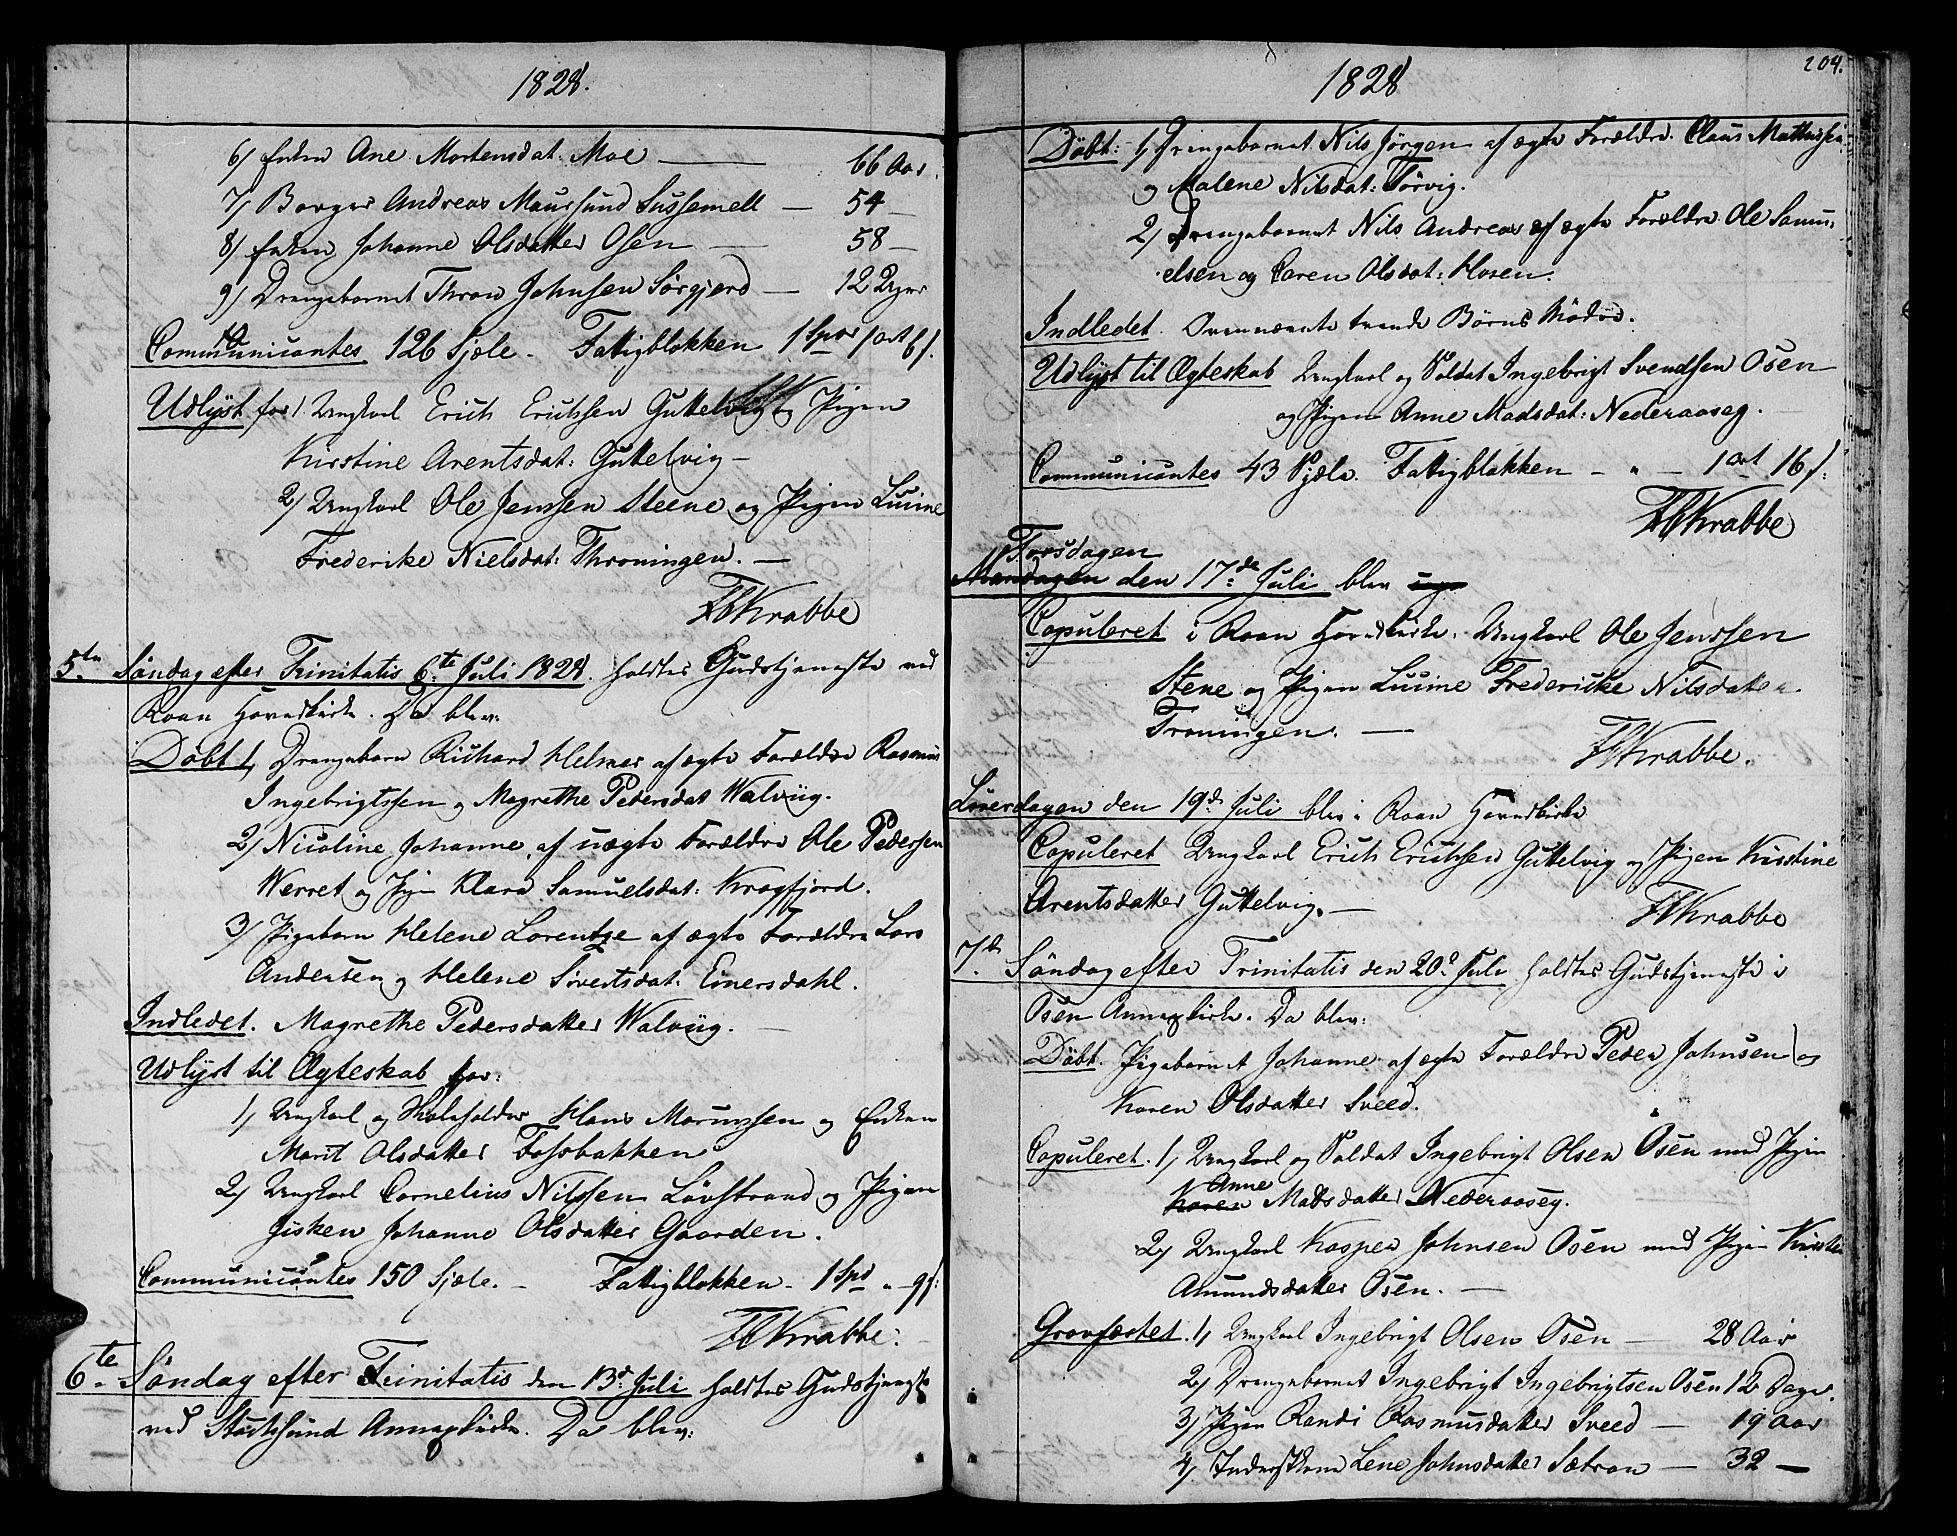 1828.
6) Enken Ane Mortensdat: Moe — 66 Aar
7) Borger Andreas Maursund Sussemell — 54 —
8) Enken Johanne Olsdatter Osen — 58 —
9) Drengebarnet Thron Johnsen Sørgjerd — 12 Uger
Communicantes 126 Sjæle. Fattigblokken 1 Spd 1 ort 6 s.
Udlyst for 1 Ungkarl Erich Erichsen Guttelvig og Pigen
Kirstine Arentsdat: Guttelvig —
2) Ungkarl Ole Jenssen Steene og Pigen Lucine
Frederike Nielsdat: Throningen. —
Krabbe
5te Søndag efter Trinitatis 6te Juli 1828. holdtes Gudstjeneste ved
Roan Hovedkirke. Da blev:
Døbt 1, Drengebarn Richard Helmer af ægte Forældre Rasmus
Ingebrigtssen og Magrethe Pedersdat Walviig.
2) Nicoline Johanne, af uægte Forældre Ole Pedersen
Werret og Pigen Klara Samuelsdat: Kragfjord.
3) Pigebarn Helene Lorentze af ægte Forældre Lars
Andersen og Helene Sivertsdat: Einersdahl.
Indledet. Magrethe Pedersdatter Walviig. —
Udlyst til Ægteskab for:
1) Ungkarl og Skoleholder Hans Morinssen og Enken
Marit Olsdatter Fossbakken
2) Ungkarl Cornelius Nilssen Løvstrand og Pigen
Johanne Olsdatter Gaarden.
Communicantes 150 Sjæle. — Fattigblokken — 1 Spd " — 9 s:
Krabbe.
6te Søndag efter Trinitatis den 13d Juli holdtes Gudstjeneste
ved Stoksund Annexkirke. Da blev:
1828
204.
Døbt: 1, Drengebarnet Nils Jörgen af ægte Forældre Claus
og Malene Nilsdat: Tørvig.
2) Drengebarnet Nils Andreas af ægte Forældre Ole Samu-
elsen og Caren Olsdat: Hosen.
Indledet. Ovennævnte tvende Börns Mödre.
Udlyst til Ægteskab Ungkarl og Soldat Ingebrigt Svendsen Osen
og Pigen Anne Madsdat: Nederaaseg.
Communicantes 43 Sjæle. Fattigblokken — " — 1 ort 16 s:
Krabbe
Torsdagen
Mandagen den 17de Juli blev
Copuleret i Roan Hovedkirke. Ungkarl Ole Jenssen
Stene og Pigen Lucine Fredericke Nilsdatter
Troningen. —
Krabbe.
Löverdagen den 19de Juli blev i Roan Hovedkirke
Copuleret Ungkarl Erich Erichsen Guttelvig og Pigen Kirstine
Arentsdatter Guttelvig. —
Krabbe
7de Søndag efter Trinitatis den 20de Juli holdtes Gudstjeneste i
Osen Annexkirke. Da blev:
Döbt. Pigebarnet Johanne af ægte Forældre Peder Johnsen og
Karen Olsdatter Sveed.
Copuleret. 1, Ungkarl og Soldat Ingebrigt Olsen Osen med Pigen
Anne
Karen Madsdatter Nederaaseg.
2) Ungkarl Kasper Johnsen Osen med Pigen
Amundsdatter Osen. —
Gravfæstet. 1, Ungkarl Ingebrigt Olsen Osen — 28 Aar
2) Drengebarnet Ingebrigt Ingebrigtsen Osen 12 Dage.
3) Pigen Randi Rasmusdatter Sveed — 19 Aar
4) Inderstkone Lene Johnsdatter Sætran — 32 —